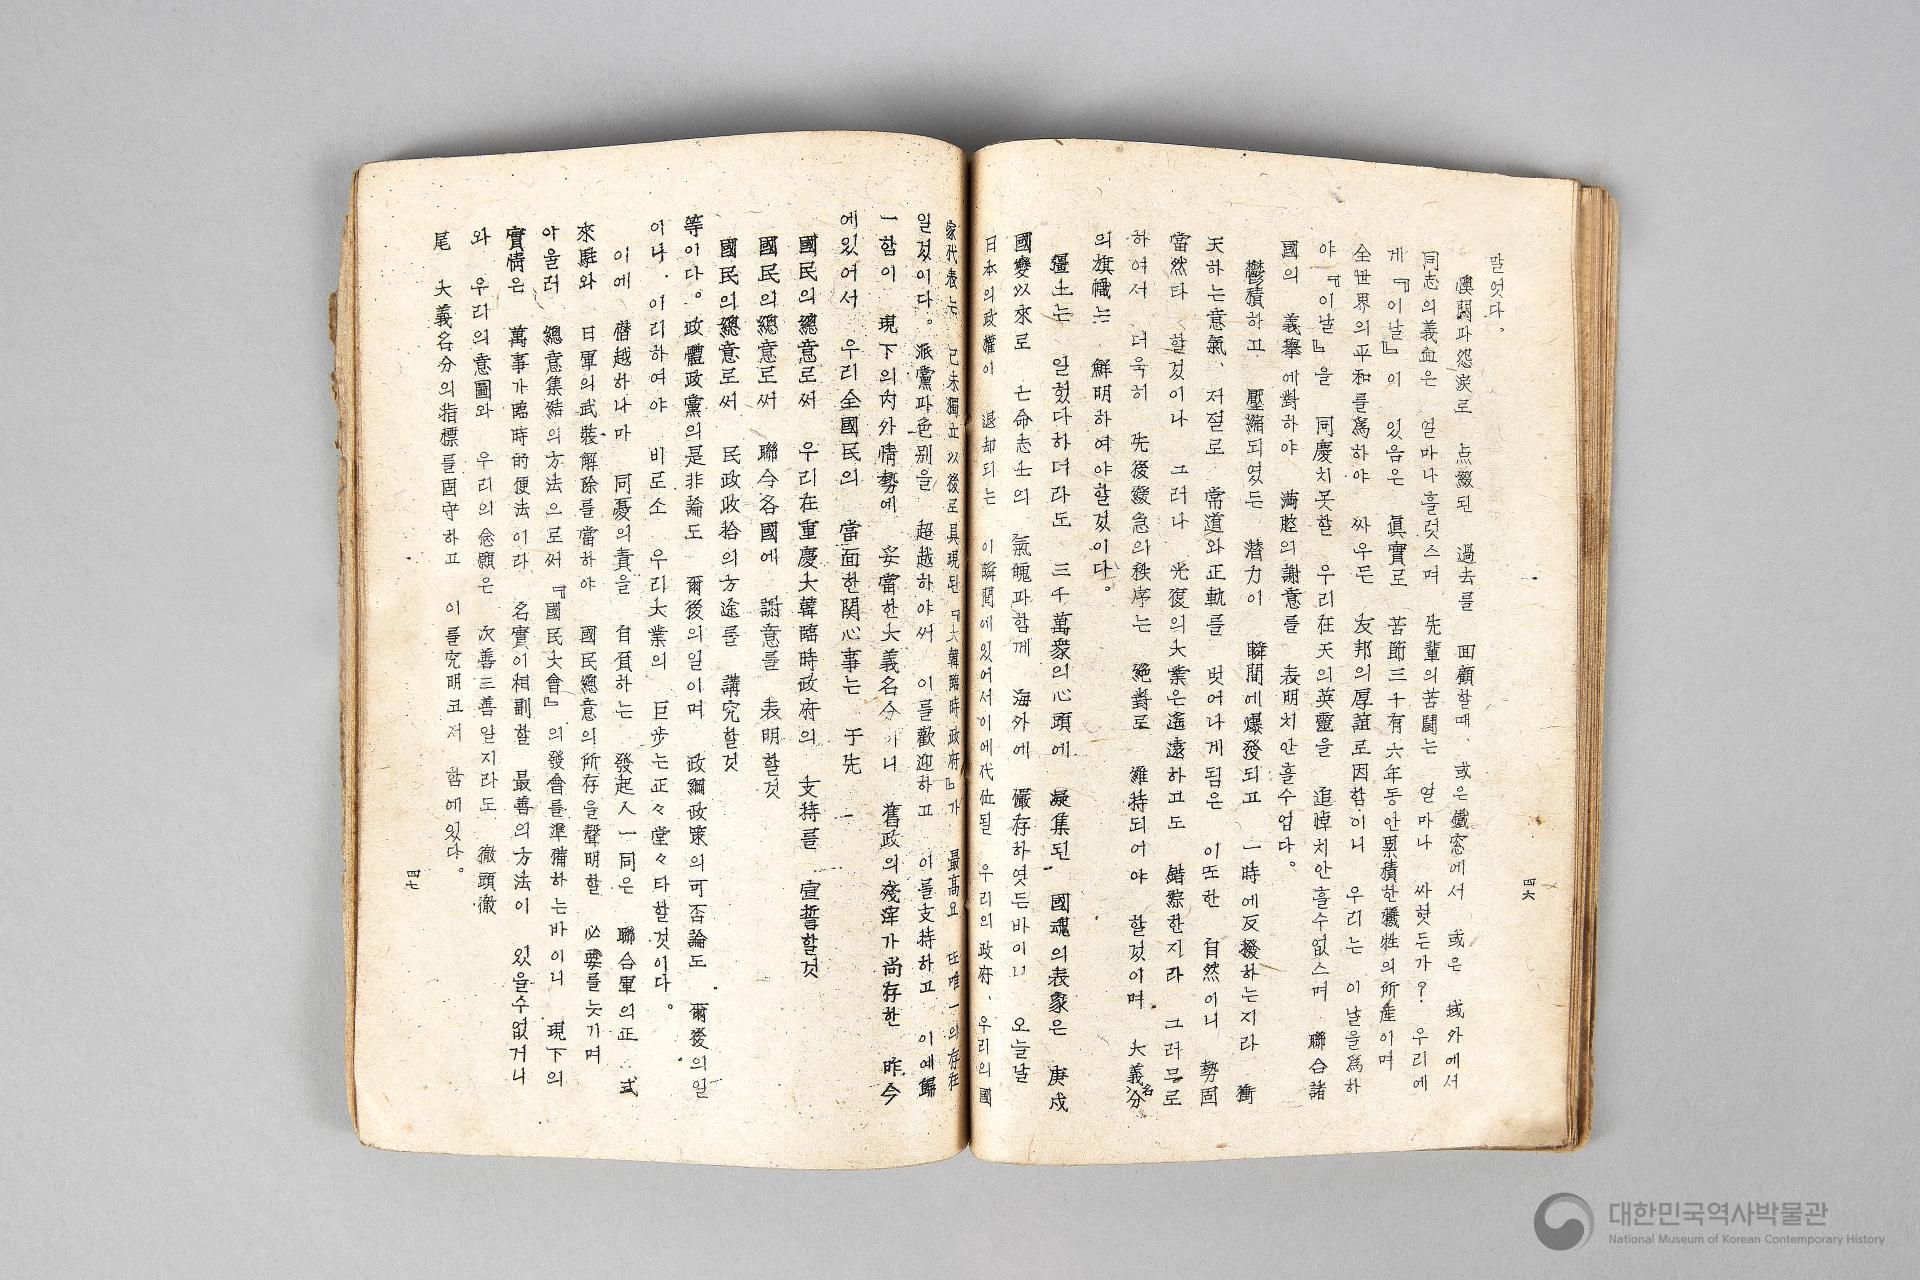 말엇다。
悽悶과怨淚로 点綴된 過去를 回顧할때、或은鐵窓에서 或은 域外에서
同志의義血은 얼마나흘럿스며 先輩의苦鬪는 얼마나 싸혓든가? 우리에
게『이날』이 있음은 眞實로 苦節三十有六年동안累積한犧牲의所產이며
全世界의平和를爲하야 싸우든 友邦의厚誼로因함이니 우리는 이날을爲하
야『이날』을 同慶치못할 우리在天의英靈을 追悼치안흘수없스며 聯合諸
國의 義擧에對하야 滿腔의謝意를 表明치안흘수업다。
鬱積하고 壓縮되였든 潛力이 瞬間에爆發되고 一時에反撥하는지라 衝
天하는意氣、저절로 常道와正軌를 벗어나게됨은 이또한 自然이니 勢固
當然타 할것이나 그러나 光復의大業은遙遠하고도 錯綜한지라 그러므로
하여서 더욱히 先後緩急의秩序는 絕對로 維持되어야 할것이며 大義名分
의旗幟는 鮮明하여야할것이다。
疆土는 일헛다하더라도 三千萬衆의心頭에 凝集된 國魂의表象은 庚戌
國變以來로 亡命志士의 氣魄과함께 海外에 儼存하엿든바이니 오늘날
日本의政權이 退却되는 이瞬間에있어서이에代位될 우리의政府、우리의國
四六
家代表는 己未獨立以後로具現된『大韓臨時政府』가 最高요 또唯一의存在
일것이다。派黨과色别을 超越하야써 이를歡迎하고 이를支持하고 이에歸
一함이 現下의內外情勢에 妥當한大義名分이니 舊政의殘滓가尚存한 昨今
에있어서 우리全國民의 當面한関心事는 于先
國民의總意로써 우리在重慶大韓臨時政府의 支持를 宣誓할것
國民의總意로써 聯合各國에 謝意를 表明할것
國民의總意로써 民政收拾의方途를 講究할것
等이다。政體政黨의是非論도 爾後의일이며 政綱政策의可否論도 爾後의일
이나、이리하여야 비로소 우리大業의 巨步는正々堂々타할것이다。
이에 僭越하나마 同憂의責을 自負하는 發起人一同은 聯合軍의正式
來駐와 日軍의武裝解除를當하야 國民總意의所存을聲明할 必要를늣기며
아울러 總意集結의方法으로써『國民大會』의發會를準備하는바이니 現下의
實情은 萬事가臨時的便法이라 名實이相副할 最善의方法이 있을수없거니
와 우리의意圖와 우리의念願은 次善三善일지라도 徹頭徹
尾 大義名分의指標를固守하고 이를究明코저 함에있다。
四七
대한민국역사박물관
National Museum of Korean Contemporary History